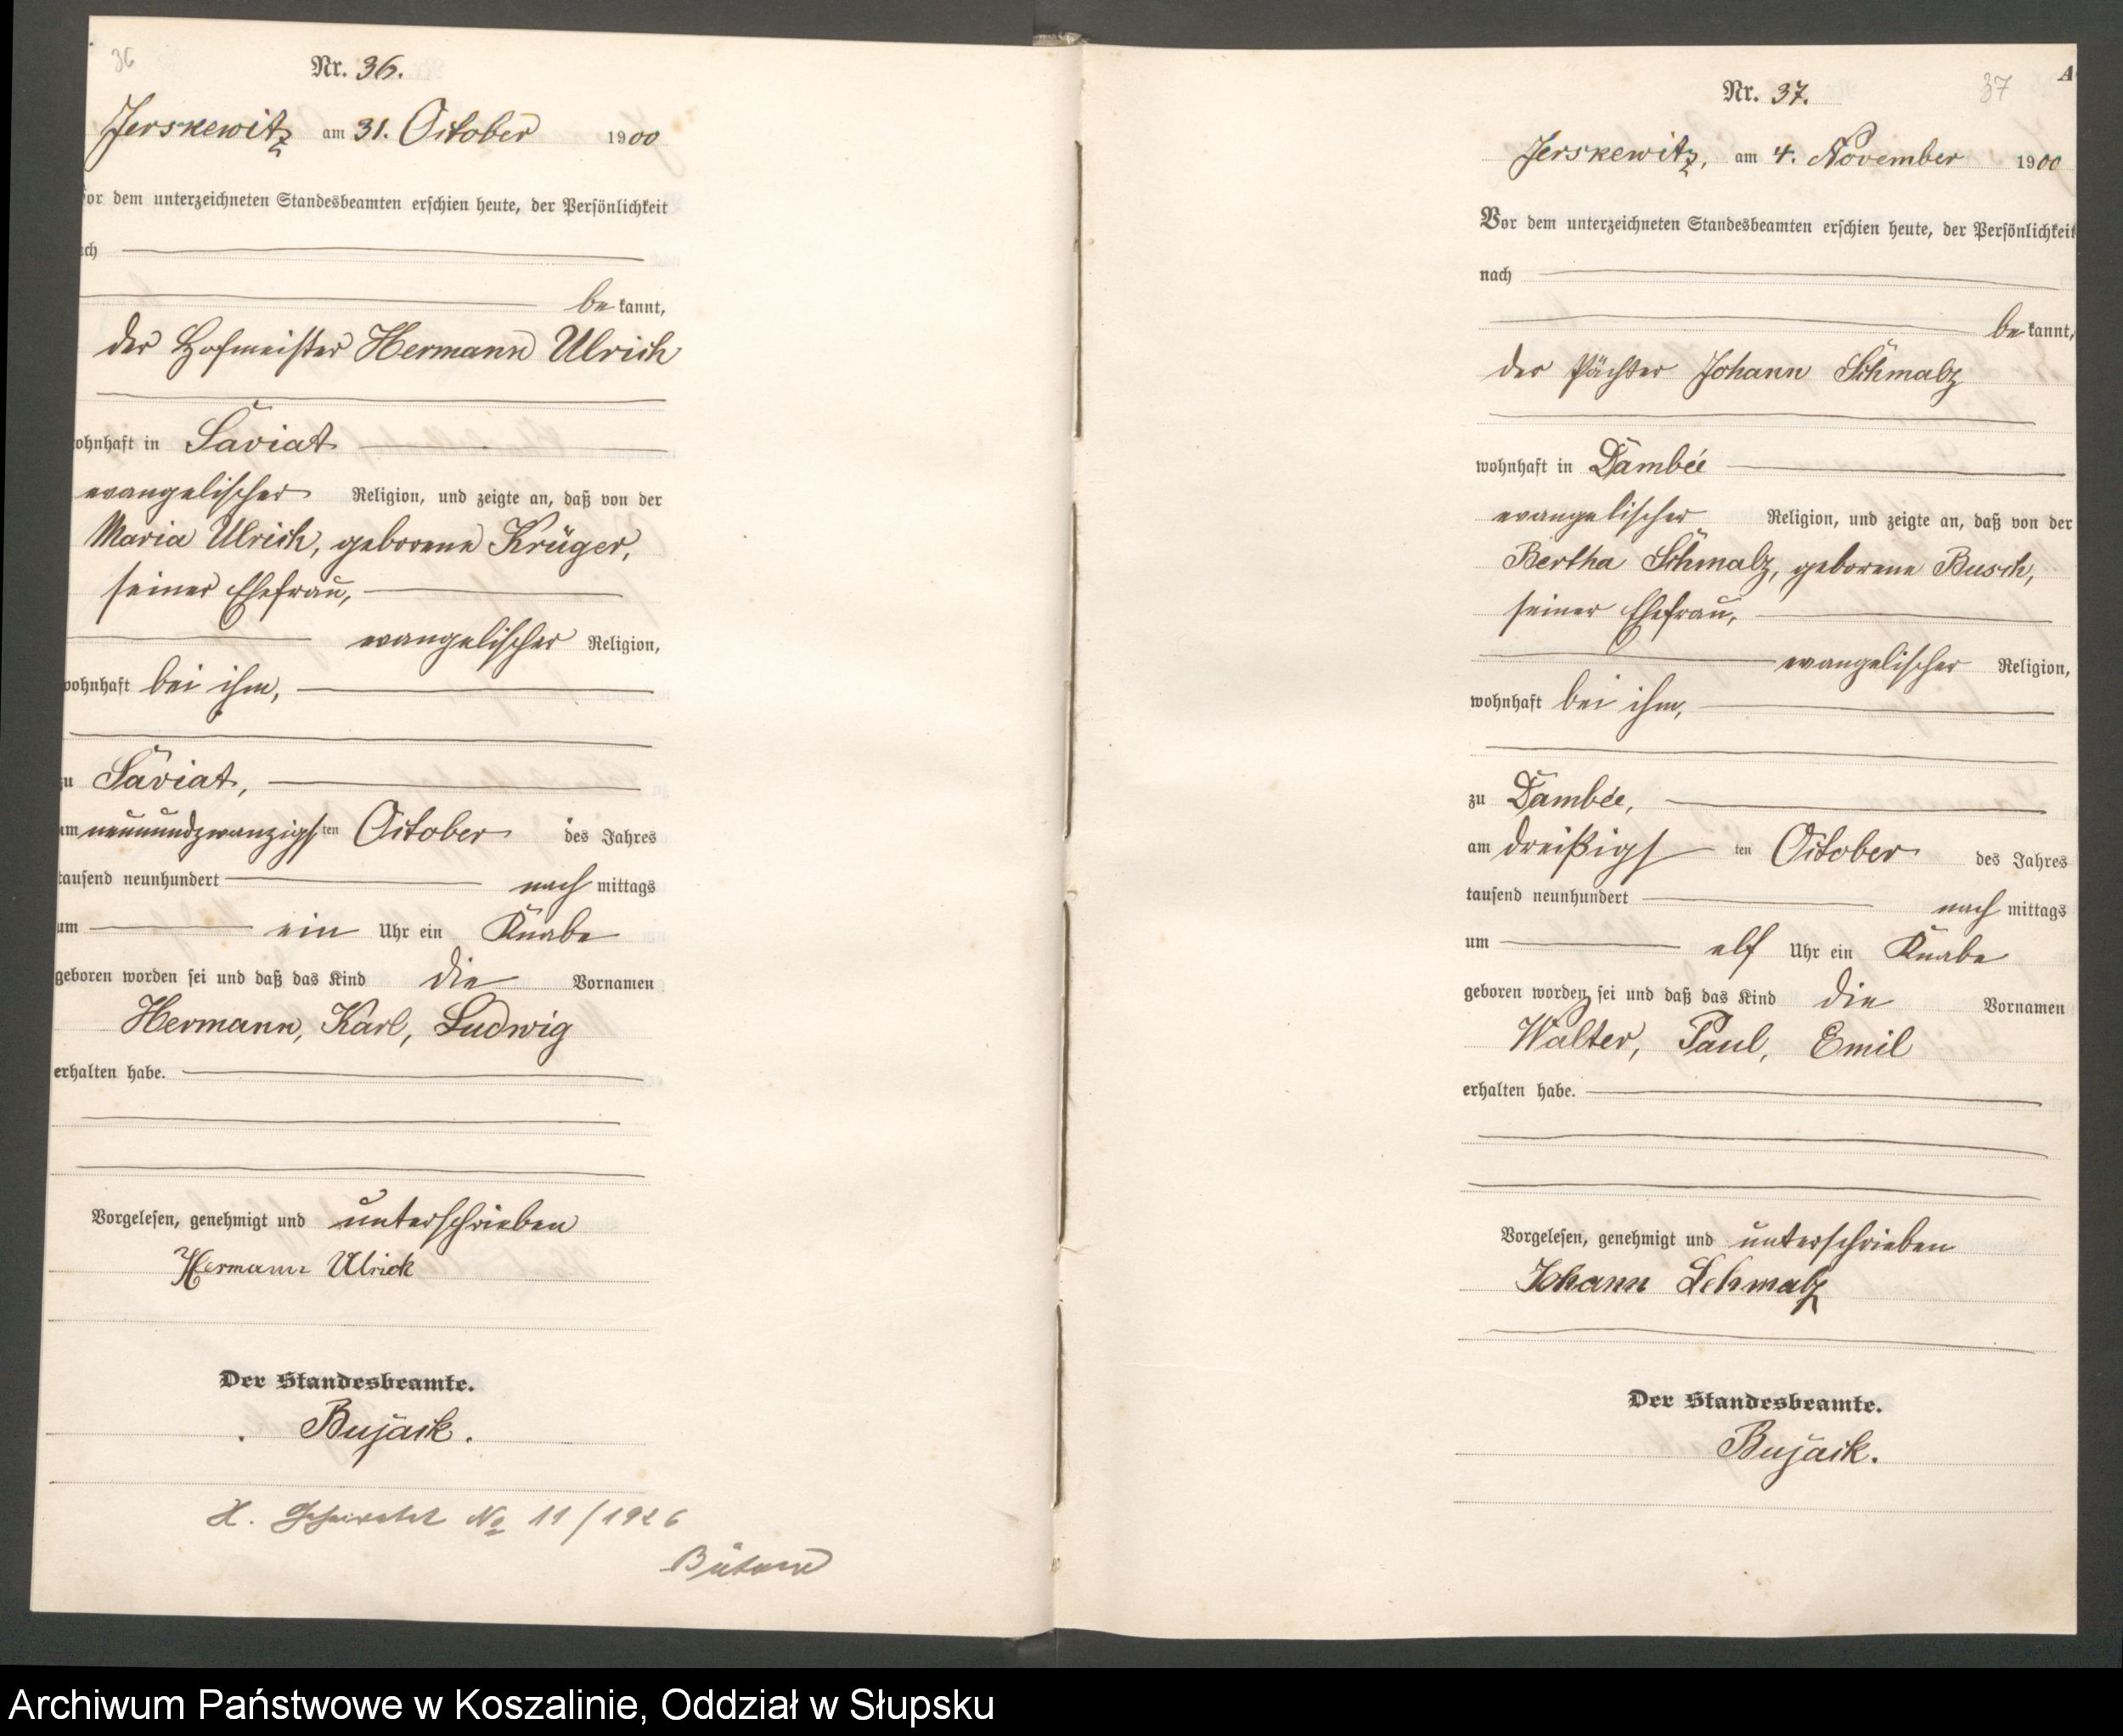 36
Nr. 36.
Jerskewitz am 31. October 1900
or dem unterzeichneten Standesbeamten erschien heute, der Persönlichkeit
ch
be kannt,
der Hofmeister Hermann Ulrich
ohnhaft in Saviat
evangelischer Religion, und zeigte an, daß von der
Maria Ulrich, geborene Krüger,
seiner Ehefrau,
evangelischer Religion,
wohnhaft bei ihm,
zu Saviat,
am neunundzwanzigsten October des Jahres
tausend neunhundert nach mittags
um ein Uhr ein Knabe
geboren worden sei und daß das Kind die Vornamen
Hermann, Karl, Ludwig
erhalten habe.
Vorgelesen, genehmigt und unterschrieben
Hermann Ulrich
Der Standesbeamte.
Bujack.
H. Geheiratet No 11/1926
Bütow
37
A
Nr. 37.
Jerskewitz, am 4. November 1900
Vor dem unterzeichneten Standesbeamten erschien heute, der Persönlichkeit
nach
be kannt,
der Pächter Johann Schmalz
wohnhaft in Dambée
evangelischer Religion, und zeigte an, daß von der
Bertha Schmalz, geborene Busch,
seiner Ehefrau,
evangelischer Religion,
wohnhaft bei ihm,
zu Dambée,
am dreißigsten October des Jahres
tausend neunhundert nach mittags
um elf Uhr ein Knabe
geboren worden sei und daß das Kind die Vornamen
Walter, Paul, Emil
erhalten habe.
Vorgelesen, genehmigt und unterschrieben
Johann Schmalz
Der Standesbeamte.
Bujack.
Archiwum Państwowe w Koszalinie, Oddział w Słupsku